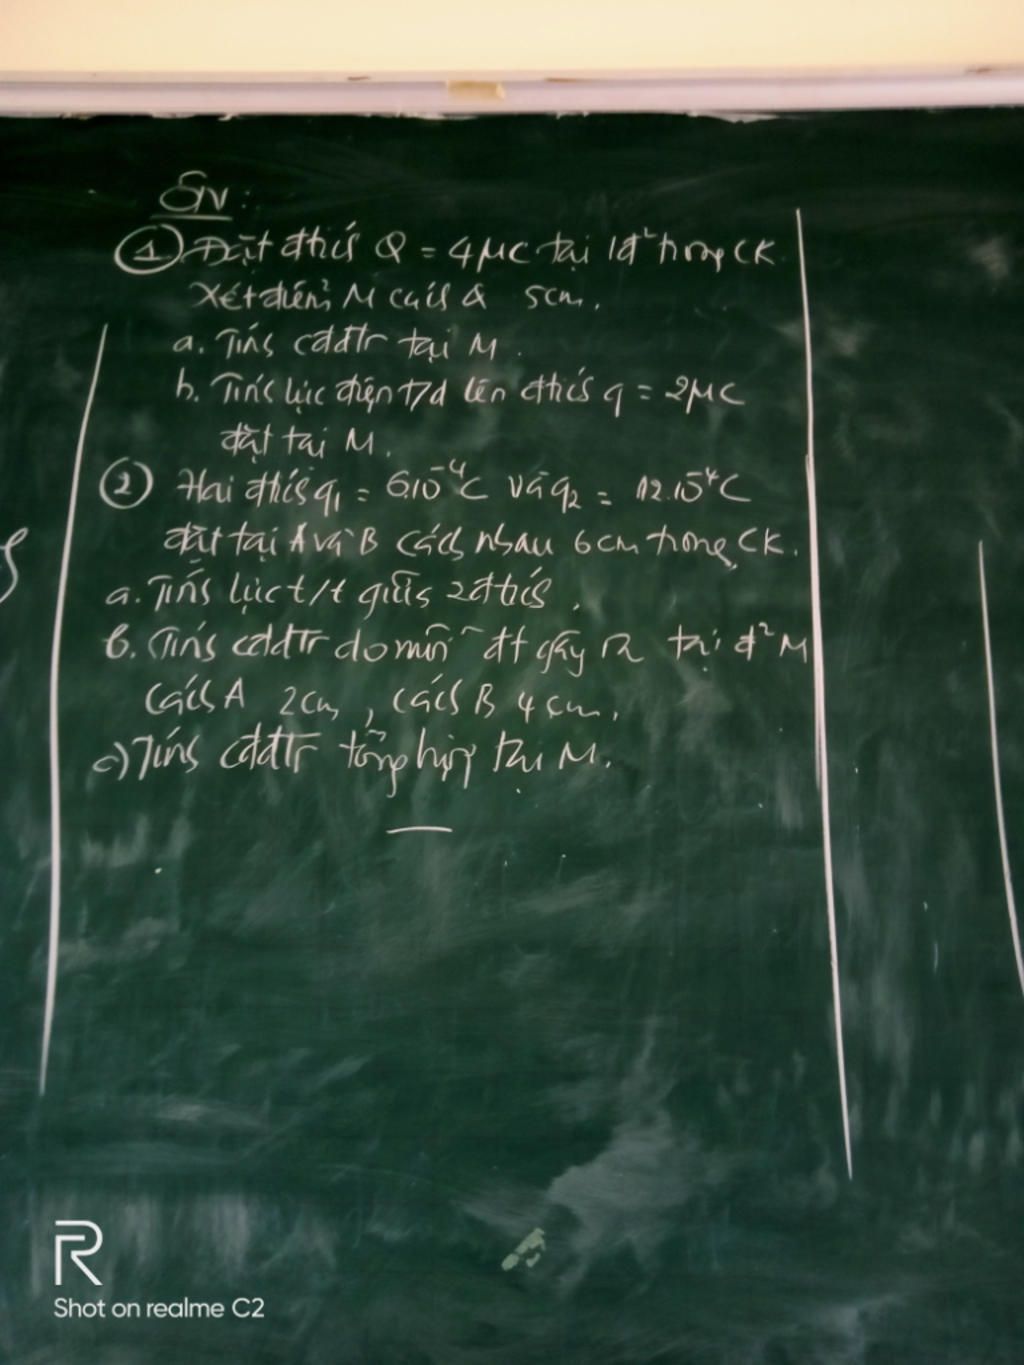 BTVN:
① Đặt đtích Q = 4μC tại 1đ² trong CK
Xét điểm M cách Q 5cm.
a. Tính cđđtr tại M.
b. Tính lực điện t/d lên đtích q = 2μC
đặt tại M.
② Hai đtích q₁ = 6.10⁻⁴C và q₂ = 12.10⁻⁴C
đặt tại A và B cách nhau 6cm trong CK.
a. Tính lực t/t giữa 2 đtích.
b. Tính cđđtr do mỗi đt gây ra tại đ² M
cách A 2cm, cách B 4cm.
c) Tính cđđtr tổng hợp tại M.
R
Shot on realme C2